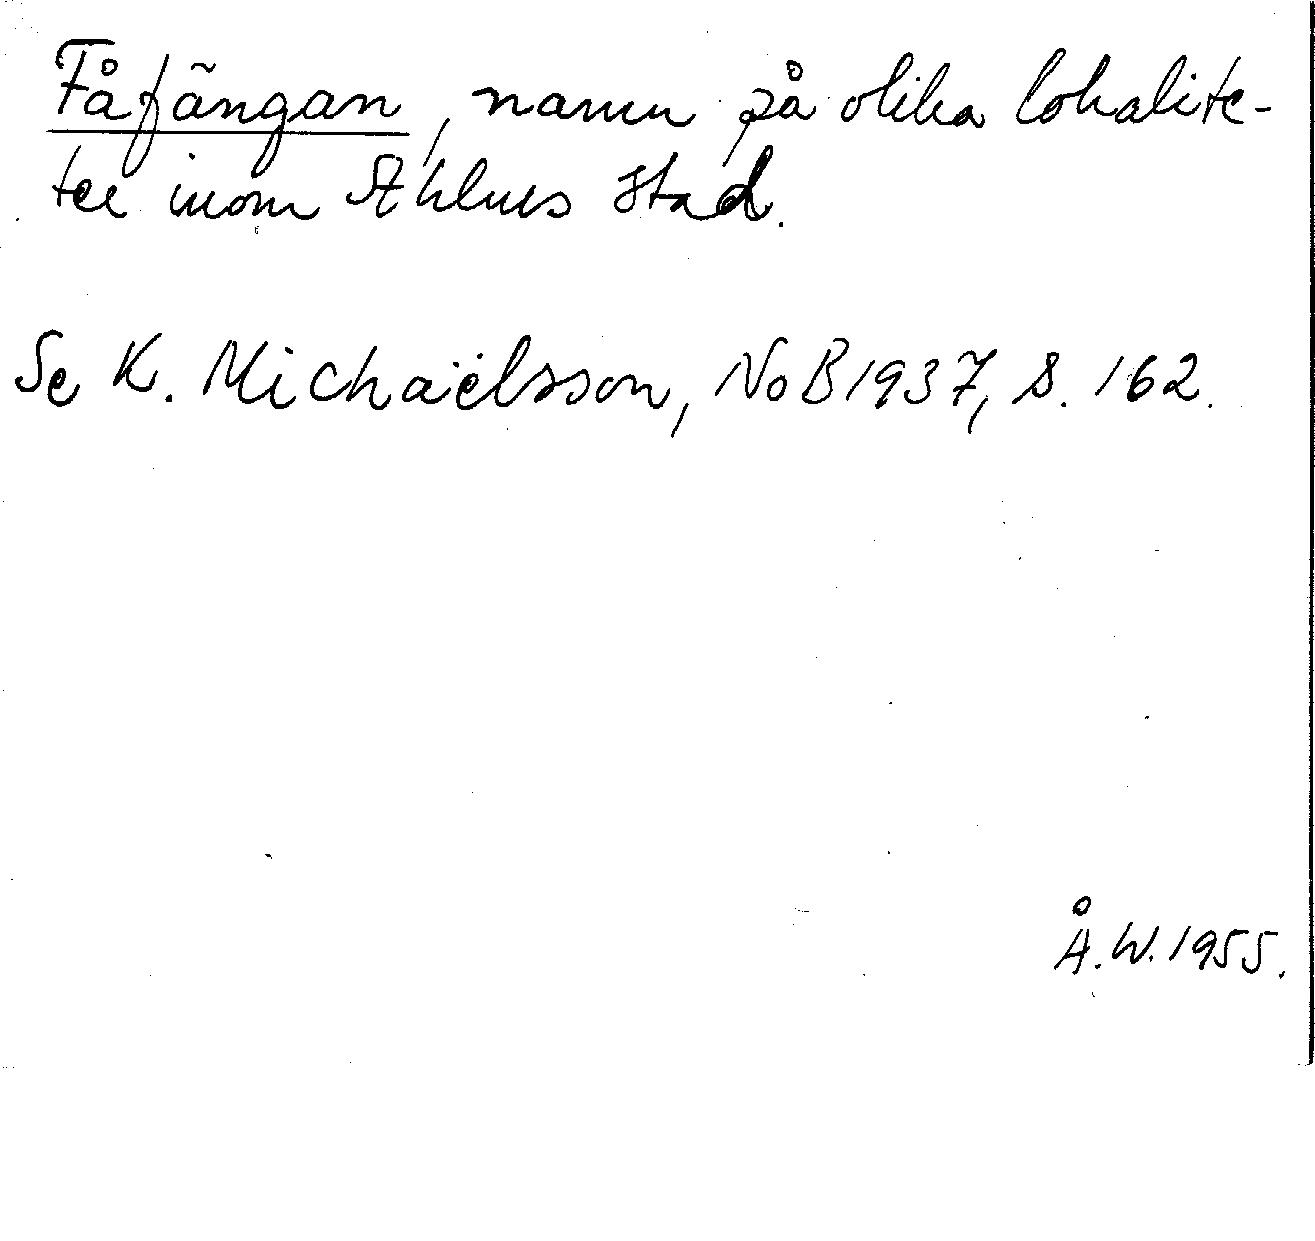 Fåfängan, namn på olika lokalite-
ter inom Sthlms stad.
Se K. Michaëlsson, NoB 1937, s. 162.
Å.W. 1955.